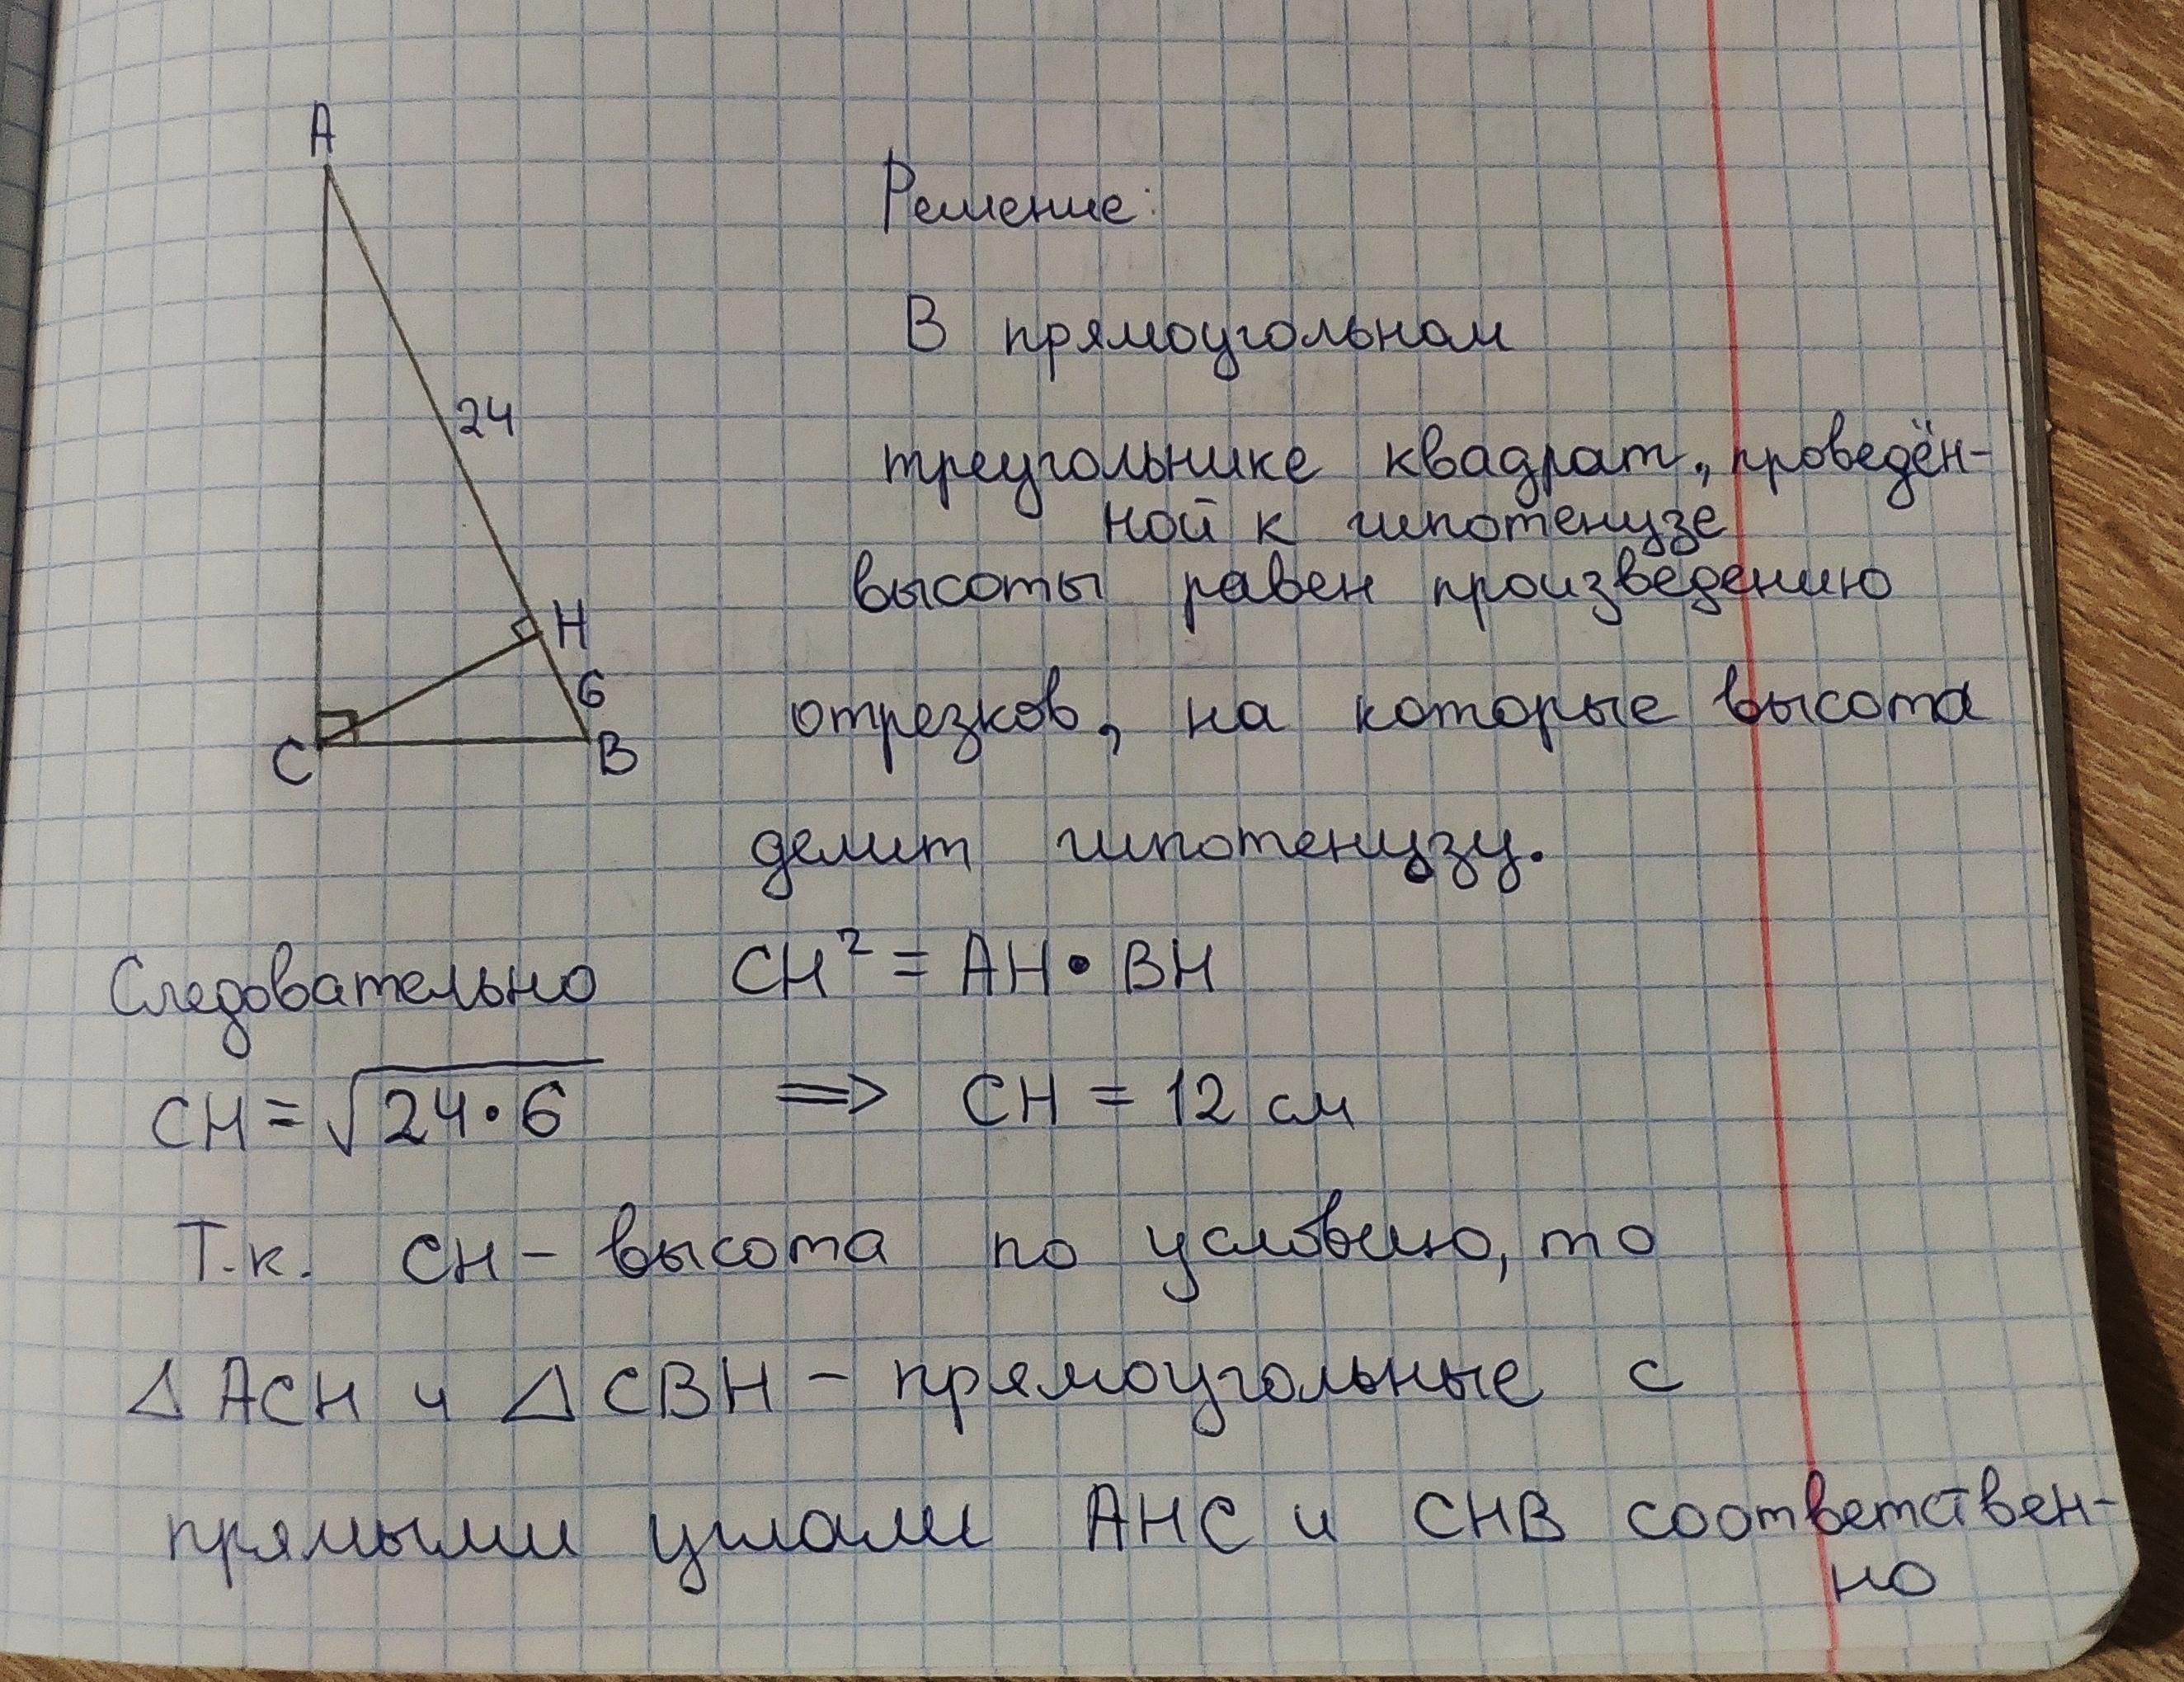 A
24
H
6
C
B
Решение:
В прямоугольном
треугольнике квадрат, проведён-
ной к гипотенузе
высоты равен произведению
отрезков, на которые высота
делит гипотенузу.
Следовательно CH² = AH • BH
CH = √24•6 ⟹ CH = 12 см
Т.к. CH – высота по условию, то
△ ACH и △ CBH – прямоугольные с
прямыми углами AHC и CHB соответствен-
но